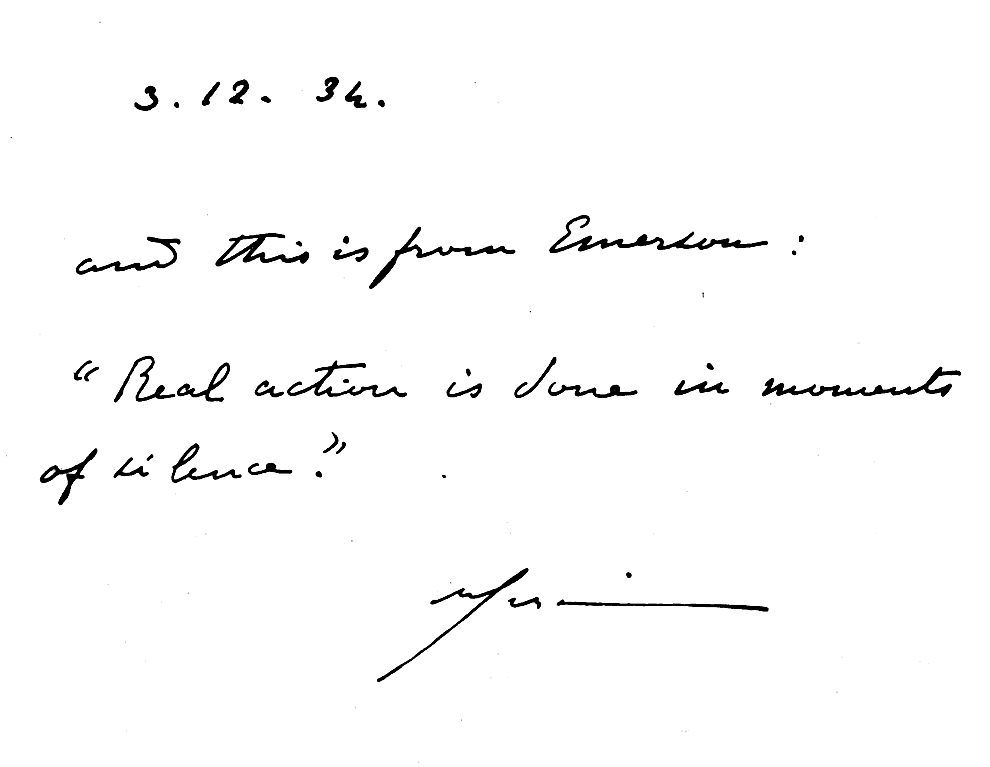 3.12.34.
and this is from Emerson:
"Real action is done in moments
of silence."